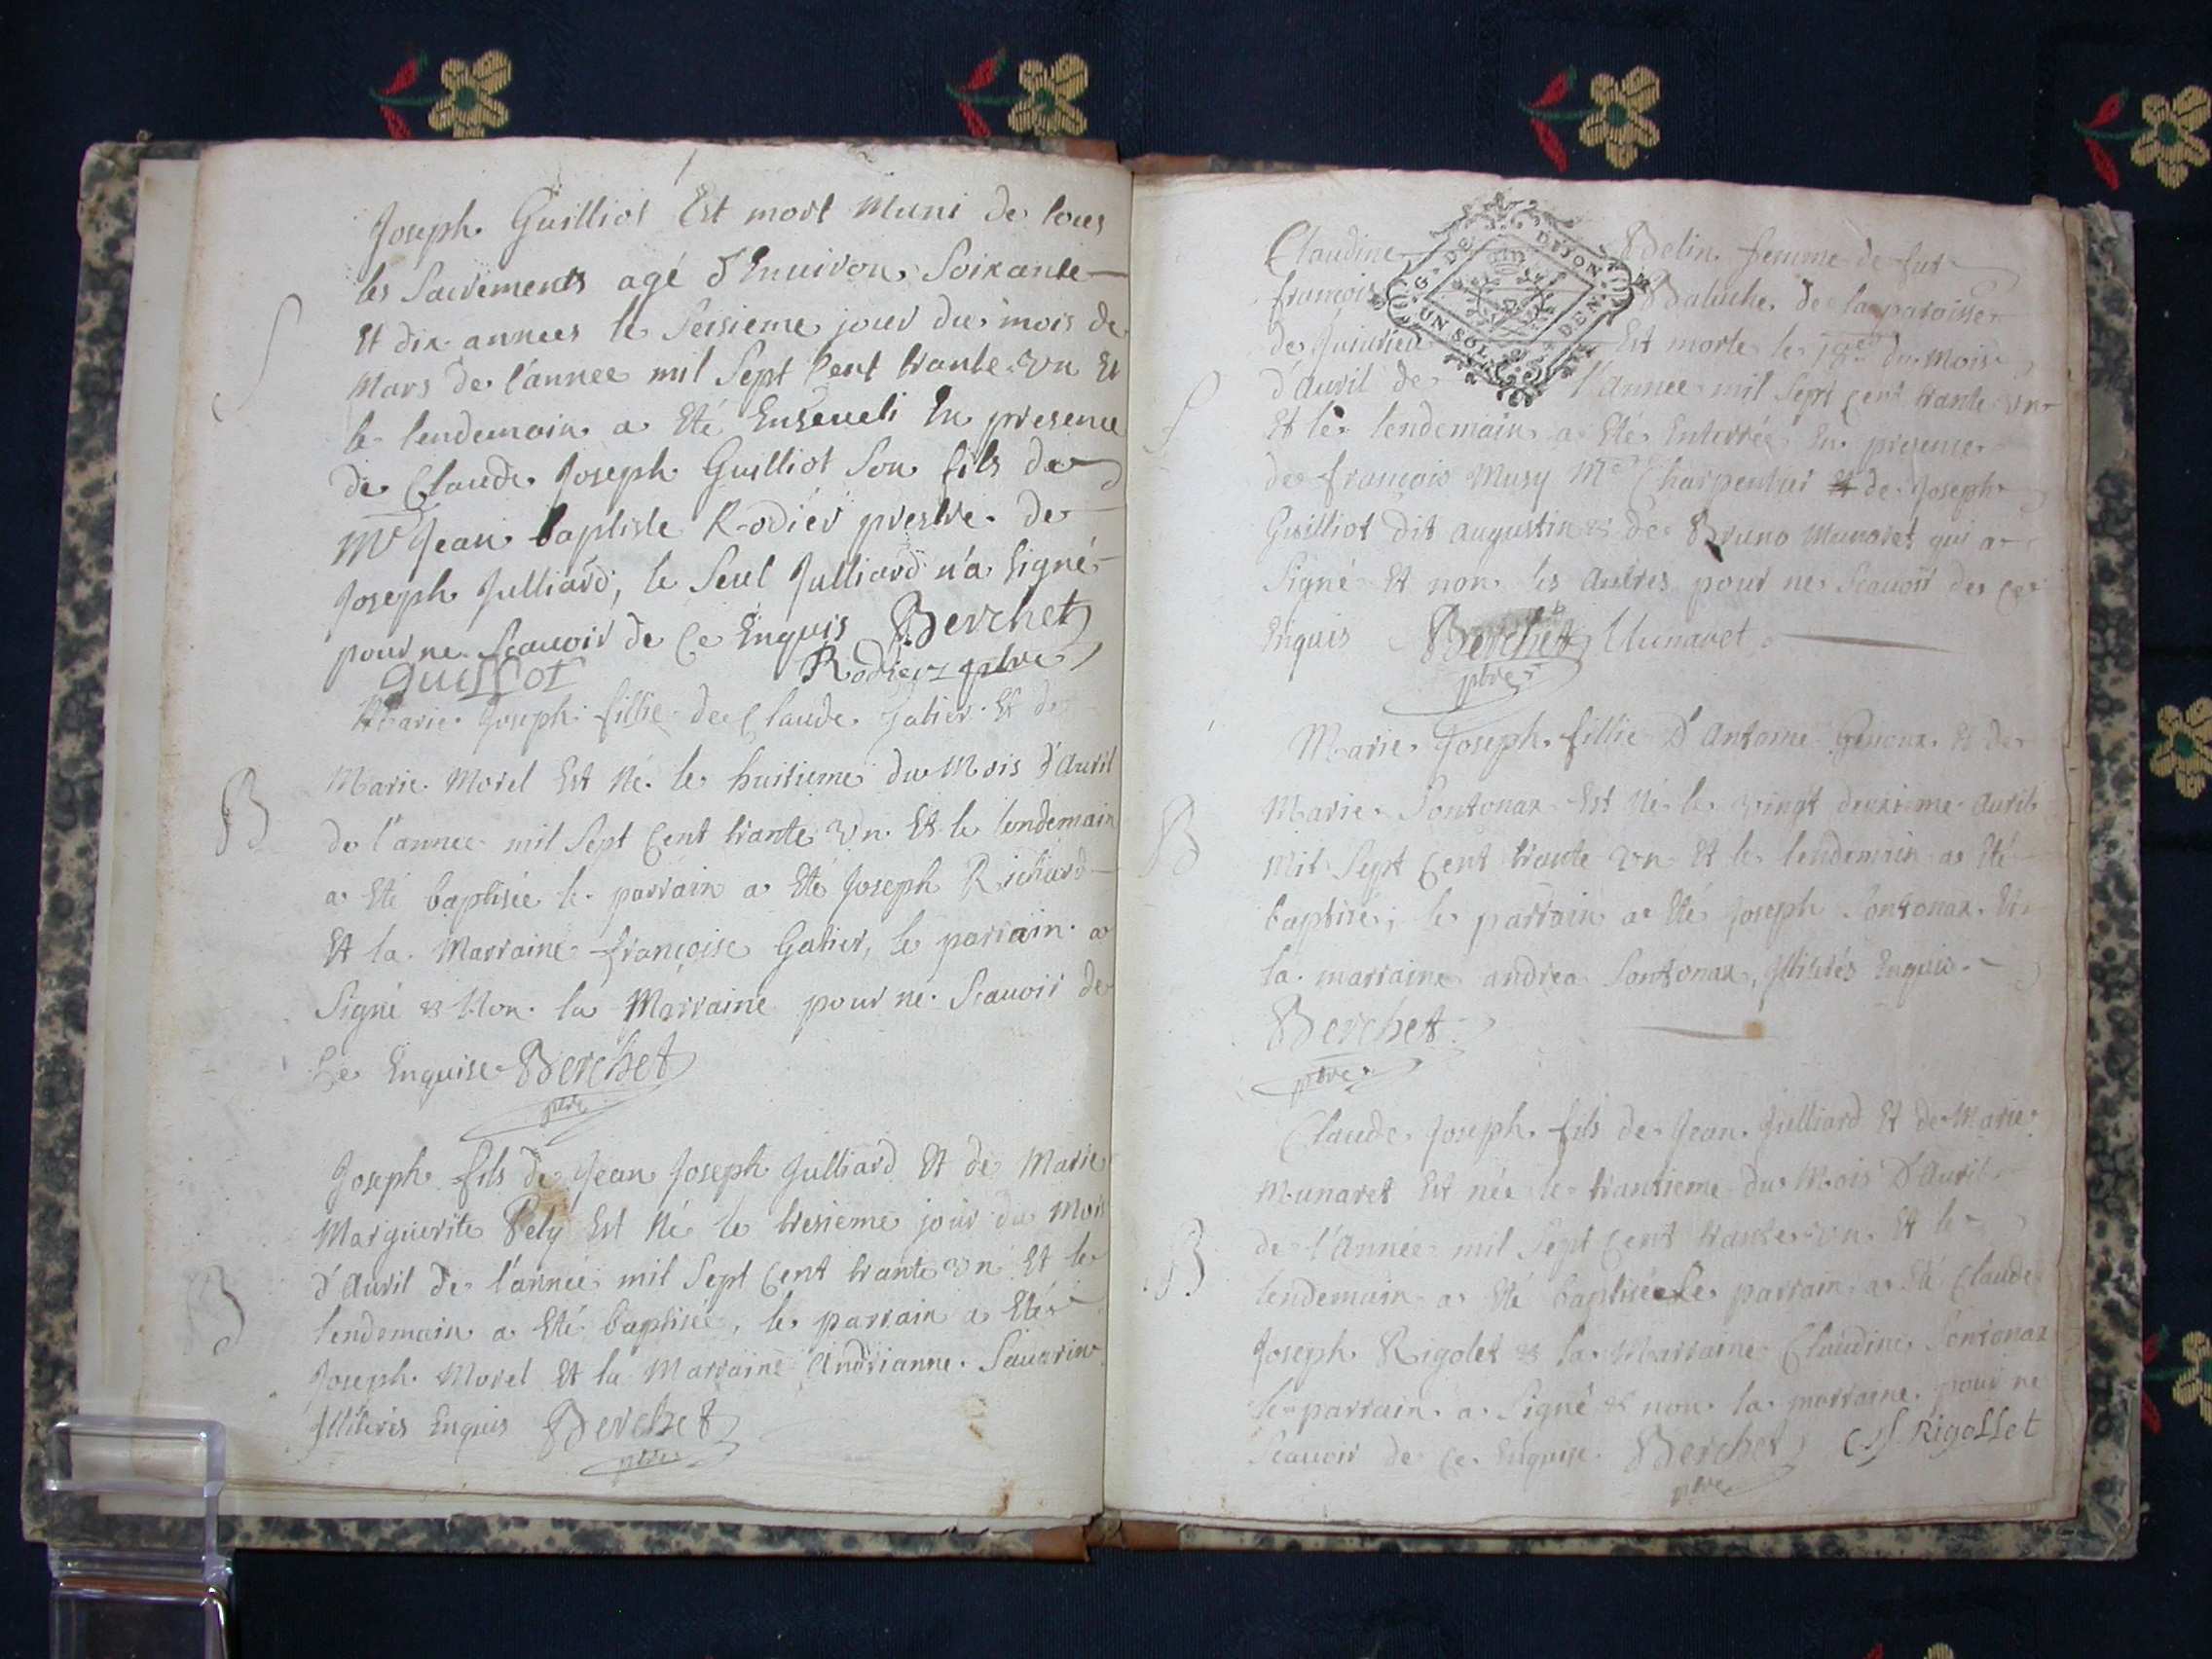 Joseph Guilliot Est mort Muni de tous
les Sacrements agé d'Enuiron Soixante
Et dix annees le Seisieme jour du mois de
Mars de l'annee mil Sept Cent trante Vn Et
le lendemain a Eté Enseueli En presence
de Claude Joseph Guilliot Son fils de
Mre Jean baptiste Rodier prestre de
Joseph Julliard, le Seul Julliard n'a Signé
pour ne Scauoir de Ce Enquis Berchet
Guilliot Rodier ptre
S
Marie Joseph fillie de Claude Et de
Marie Morel Est Né le huitieme du Mois d'Auril
de l'annee mil Sept Cent trante Vn Et le lendemain
a Eté baptisée le parrain a Eté Joseph Richard
Et la Marraine françoise Galier, le parrain a
Signé & Non la Marraine pour ne Scauoir de
Ce Enquise Berchet
ptre
B
Joseph fils de Jean Joseph Julliard Et de Marie
Marguerite Pely Est Né le tresieme jour du Mois
d'Auril de l'année mil Sept Cent trante Vn Et le
lendemain a Eté baptisée, le parrain a Eté
Joseph Morel Et la Marraine Andrianne Sauarin
Illiterés Enquis Berchet
ptre
B
G. DE DIJON
UN SOL DEN.
Claudine Belin femme de fut
francois de la paroisse
de Jujurieu Est morte le 19e du Mois
d'Auril de l'Annee mil Sept Cent trante Vn
Et le lendemain a Eté Enterrée En presence
de francois Musy Me Charpentier de Joseph
Guilliot dit augustin & de Bruno Munaret qui a
Signé Et non les Autres pour ne Scauoir de Ce
Enquis Berchet Munaret
ptre
S
Marie Joseph fillie d'Antoine Genoux Et de
Marie Sontonax Est Né le vingt deuxieme Auril
Mil Sept Cent trante Vn Et le lendemain a Eté
baptisé, le parrain a Eté Joseph Sontonax Et
la marraine andrea Sontonax, Illiterés Enquis
Berchet
ptre
B
Claude Joseph fils de Jean Julliard Et de Marie
Munaret Est née le trantieme du Mois d'Auril
de l'Année mil Sept Cent trante Vn Et le
lendemain a Eté baptisée le parrain a Eté Claude
Joseph Rigolet & la Marraine Claudine Sontonax
le parrain a Signé & non la marraine pour ne
Scauoir de Ce Enquise Berchet CJ Rigollet
ptre
B